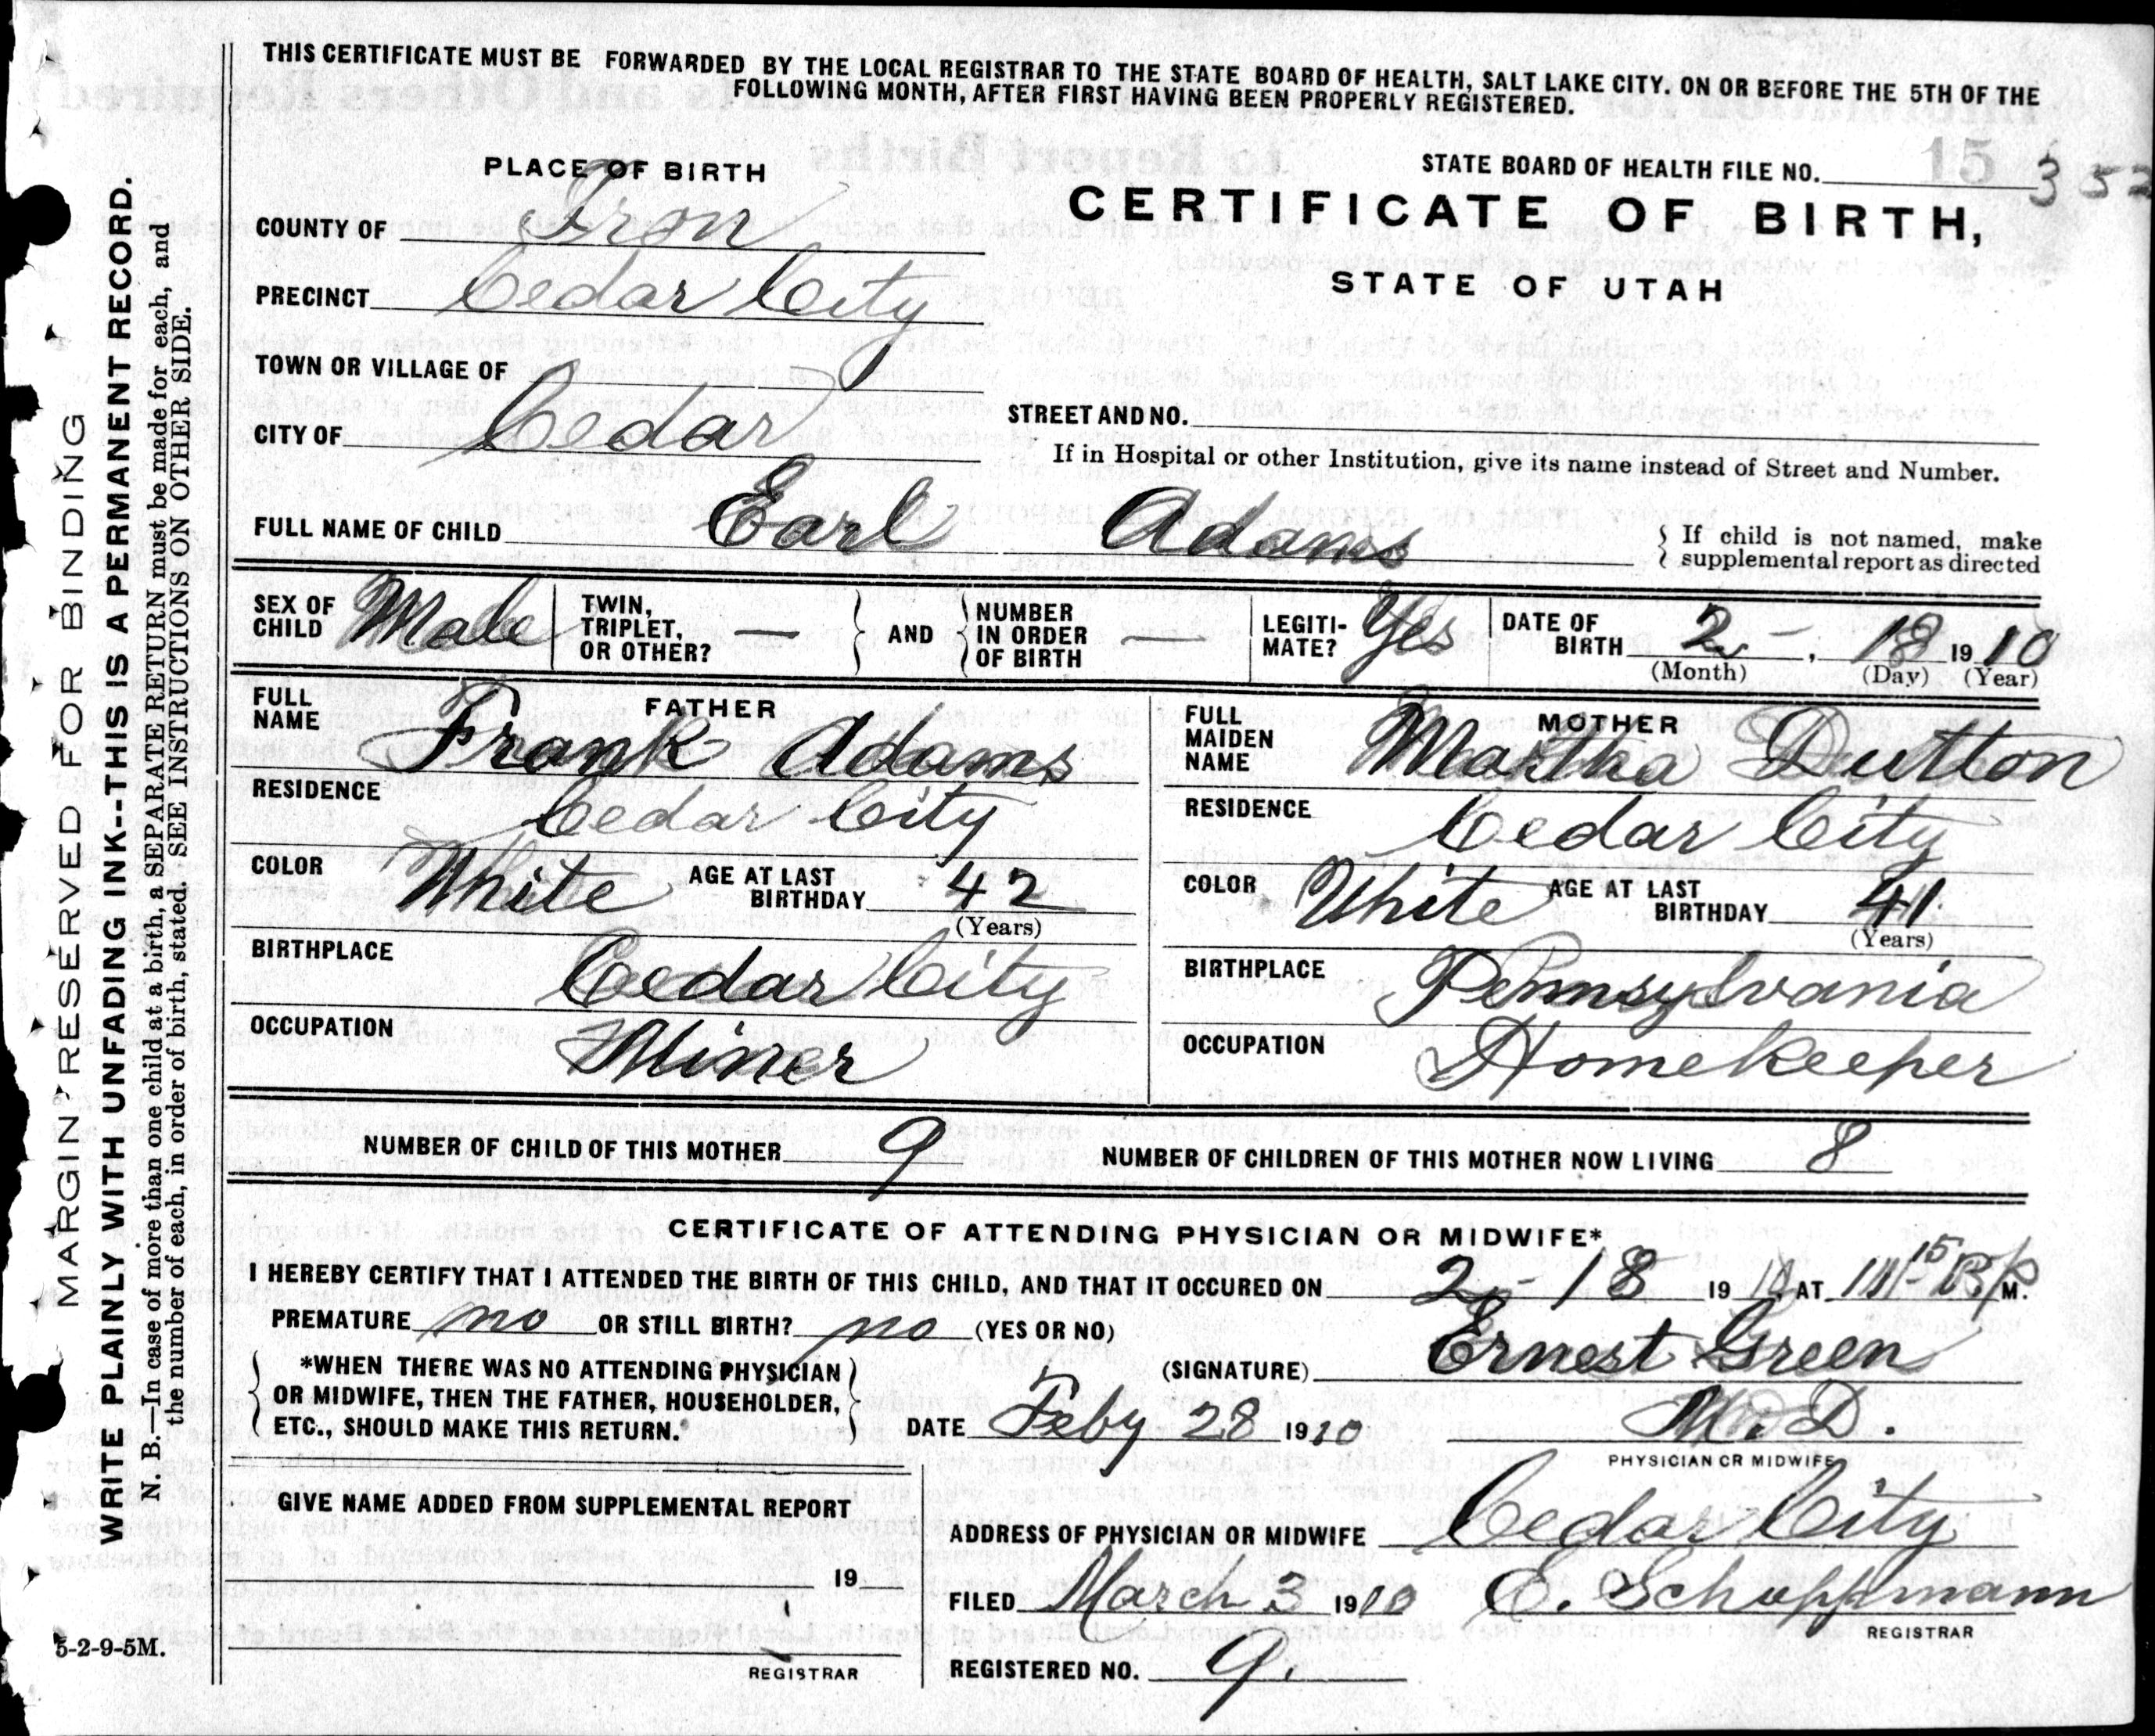 THIS CERTIFICATE MUST BE FORWARDED BY THE LOCAL REGISTRAR TO THE STATE BOARD OF HEALTH, SALT LAKE CITY. ON OR BEFORE THE 5TH OF THE
FOLLOWING MONTH, AFTER FIRST HAVING BEEN PROPERLY REGISTERED.
MARGIN RESERVED FOR BINDING
WRITE PLAINLY WITH UNFADING INK--THIS IS A PERMANENT RECORD.
N. B.—In case of more than one child at a birth, a SEPARATE RETURN must be made for each, and
the number of each, in order of birth, stated. SEE INSTRUCTIONS ON OTHER SIDE.
PLACE OF BIRTH
STATE BOARD OF HEALTH FILE NO. 15 352
COUNTY OF Iron
CERTIFICATE OF BIRTH,
PRECINCT Cedar City
STATE OF UTAH
TOWN OR VILLAGE OF
CITY OF Cedar
STREET AND NO.
If in Hospital or other Institution, give its name instead of Street and Number.
FULL NAME OF CHILD Earl Adams
If child is not named, make
supplemental report as directed
SEX OF CHILD Male TWIN, TRIPLET, OR OTHER? — AND NUMBER IN ORDER OF BIRTH — LEGITI-MATE? Yes DATE OF BIRTH 2 - , 18 1910
(Month) (Day) (Year)
FATHER
FULL NAME Frank Adams
RESIDENCE Cedar City
COLOR White AGE AT LAST BIRTHDAY 42
(Years)
BIRTHPLACE Cedar City
OCCUPATION Miner
MOTHER
FULL MAIDEN NAME Martha Dutton
RESIDENCE Cedar City
COLOR White AGE AT LAST BIRTHDAY 41
(Years)
BIRTHPLACE Pennsylvania
OCCUPATION Homekeeper
NUMBER OF CHILD OF THIS MOTHER 9 NUMBER OF CHILDREN OF THIS MOTHER NOW LIVING 8
CERTIFICATE OF ATTENDING PHYSICIAN OR MIDWIFE*
I HEREBY CERTIFY THAT I ATTENDED THE BIRTH OF THIS CHILD, AND THAT IT OCCURED ON 2 - 18 1910, AT M.
PREMATURE no OR STILL BIRTH? no (YES OR NO)
*WHEN THERE WAS NO ATTENDING PHYSICIAN
OR MIDWIFE, THEN THE FATHER, HOUSEHOLDER,
ETC., SHOULD MAKE THIS RETURN.
(SIGNATURE) Ernest Green
DATE Feby 28 1910 M. D.
PHYSICIAN OR MIDWIFE
GIVE NAME ADDED FROM SUPPLEMENTAL REPORT
19
REGISTRAR
ADDRESS OF PHYSICIAN OR MIDWIFE Cedar City
FILED March 3 1910 E. Schoppmann
REGISTRAR
REGISTERED NO. 9.
5-2-9-5M.